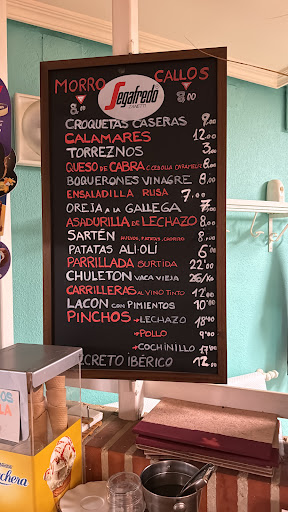 MORRO CALLOS
8,00 Segafredo 8,00
ZANETTI
CROQUETAS CASERAS 9,00
CALAMARES 12,00
TORREZNOS 3,00
QUESO DE CABRA C.CEBOLLA CARAMELIZ 6,00
BOQUERONES VINAGRE 8,00
ENSALADILLA RUSA 7,00
OREJA A LA GALLEGA 7,00
ASADURILLA DE LECHAZO 8,00
SARTÉN HUEVOS, PATATAS, CHORIZO 8,00
PATATAS ALI-OLI 6'00
PARRILLADA SURTIDA 22'00
CHULETON VACA VIEJA 26/KG
CARRILLERAS AL VINO TINTO 12'00
LACON CON PIMIENTOS 10'00
PINCHOS → LECHAZO 18'40
→ POLLO 9'00
→ COCHINILLO 17'80
CRETO IBÉRICO 12,00
LA
chera